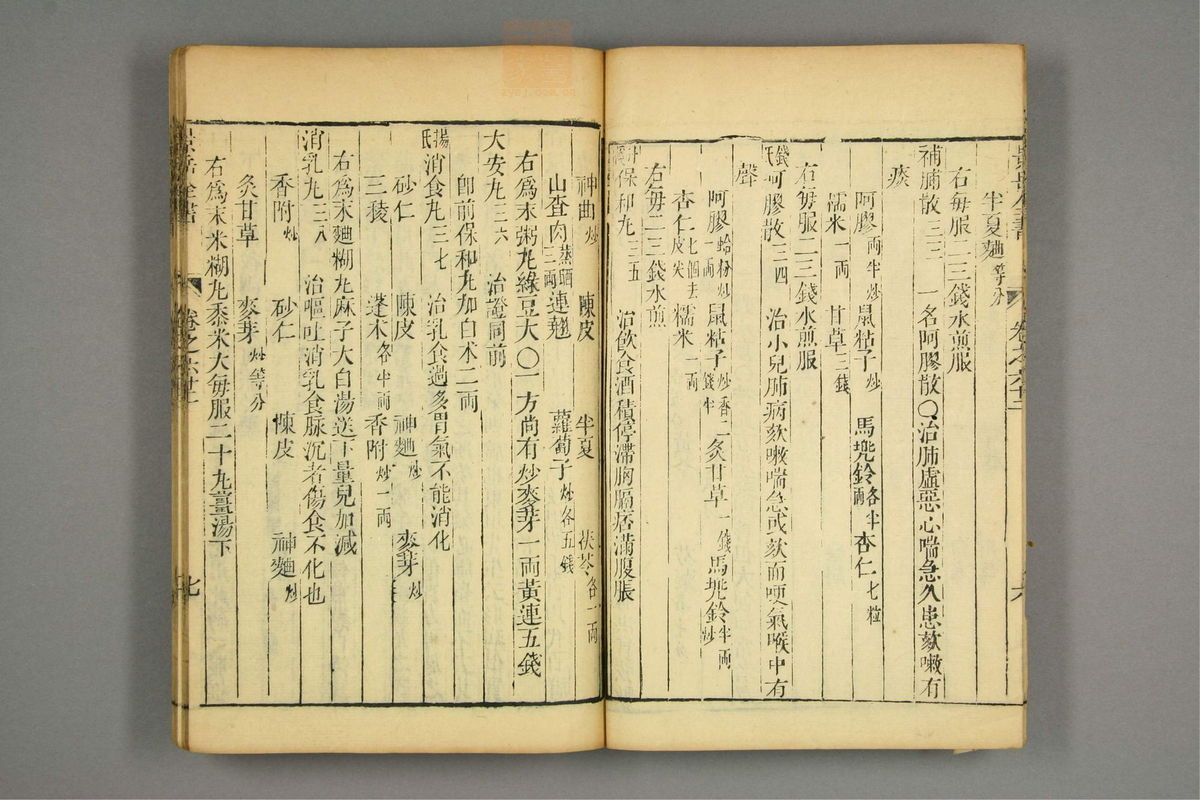 景岳全書
卷之六十二
六
半夏麯等分
右每服二三錢水煎服
補肺散三三　一名阿膠散〇治肺虛惡心喘急久患欬嗽有
痰
阿膠兩半炒　鼠粘子炒　馬兜鈴各半兩　杏仁七粒
糯米一兩　甘草三錢
右每服二三錢水煎服
錢氏阿膠散三四　治小兒肺病欬嗽喘急或欬而哽氣喉中有
聲
阿膠蛤粉炒一兩　鼠粘子炒香二錢半　炙甘草一錢　馬兜鈴半兩炒
杏仁七個去皮尖　糯米一兩
右每二三錢水煎
保和丸三五　治飲食酒積停滯胸膈痞滿腹脹
神曲炒　陳皮　半夏　茯苓各一兩
山查肉蒸晒三兩　連翹　蘿蔔子炒各五錢
右爲末粥丸綠豆大〇一方尚有炒麥芽一兩黃連五錢
大安丸三六　治證同前
卽前保和丸加白术二兩
楊氏消食丸三七　治乳食過多胃氣不能消化
砂仁　陳皮　神麯炒　麥芽炒
三稜　蓬术各半兩　香附炒一兩
右爲末麯糊丸麻子大白湯送下量兒加減
消乳丸三八　治嘔吐消乳食脉沉者傷食不化也
香附炒　砂仁　陳皮　神麯炒
炙甘草　麥芽炒等分
右爲末米糊丸黍米大每服二十丸薑湯下
景岳全書
卷之六十二
七